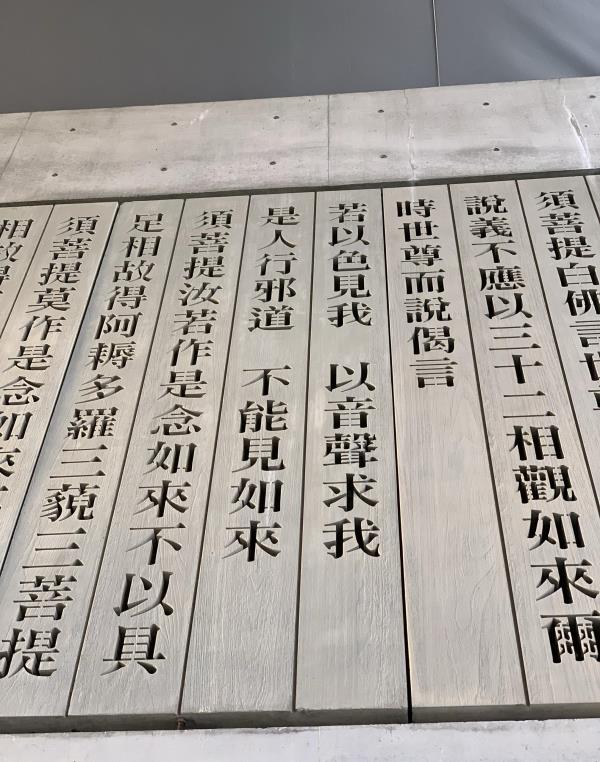 須菩提白佛言世尊
說義不應以三十二相觀如來爾
時世尊而說偈言
若以色見我　以音聲求我
是人行邪道　不能見如來
須菩提汝若作是念如來不以具
足相故得阿耨多羅三藐三菩提
須菩提莫作是念如來不
相故得